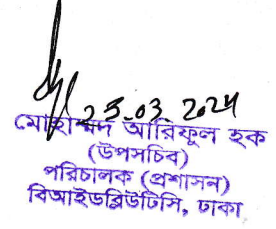 25.03.2024
মোহাম্মদ আরিফুল হক
(উপসচিব)
পরিচালক (প্রশাসন)
বিআইডব্লিউটিসি, ঢাকা